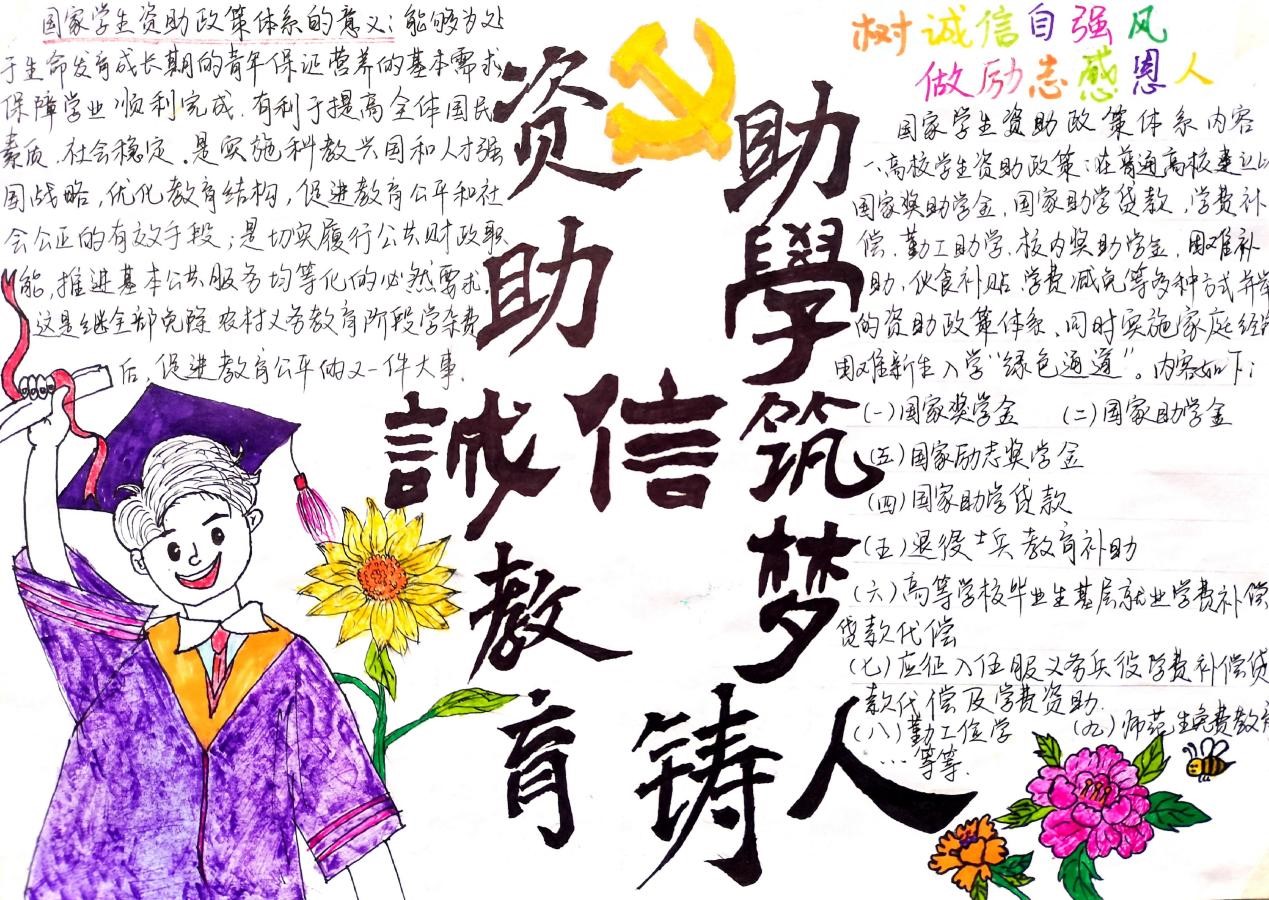 国家学生资助政策体系的意义：能够为处
于生命发育成长期的青年保证营养的基本需求，
保障学业顺利完成．有利于提高全体国民
素质．社会稳定．是实施科教兴国和人才强
国战略，优化教育结构，促进教育公平和社
会公正的有效手段；是切实履行公共财政职
能，推进基本公共服务均等化的必然要求．
这是继全部免除农村义务教育阶段学杂费
后，促进教育公平的又一件大事．
资助
誠信
教育
助學筑梦
铸人
树诚信自强风
做励志感恩人
国家学生资助政策体系内容
一、高校学生资助政策：在普通高校建立以
国家奖助学金．国家助学贷款，学费补
偿．勤工助学．校内奖助学金．困难补
助．伙食补贴．学费减免等多种方式并举
的资助政策体系．同时实施家庭经济
困难新生入学“绿色通道”。内容如下：
（一）国家奖学金 （二）国家助学金
（五）国家励志奖学金
（四）国家助学贷款
（五）退役士兵教育补助
（六）高等学校毕业生基层就业学费补偿
贷款代偿
（七）应征入伍服义务兵役学费补偿贷
款代偿及学费资助．
（八）勤工俭学 （九）师范生免费教育
…等等．